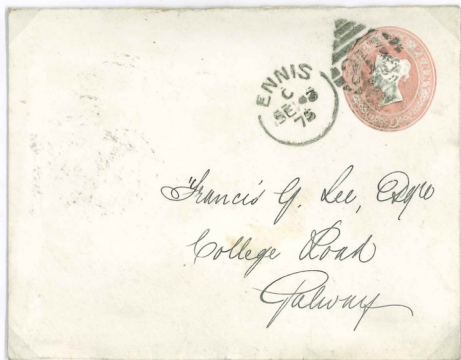 ENNIS
C
SE
75
Francis G. Lee, Esqre
College Road
Galway